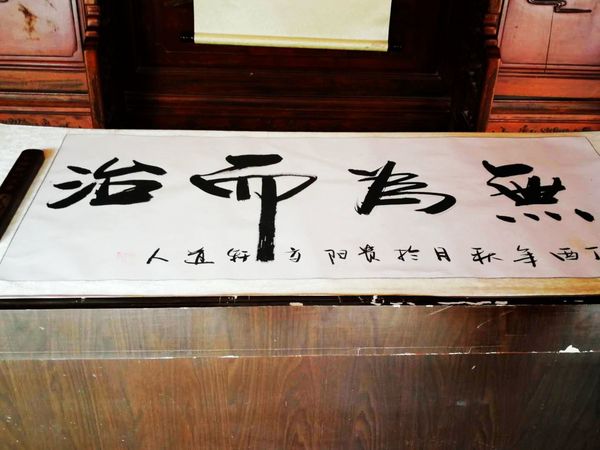 無為而治
丁酉年秋月於贵阳轩道人